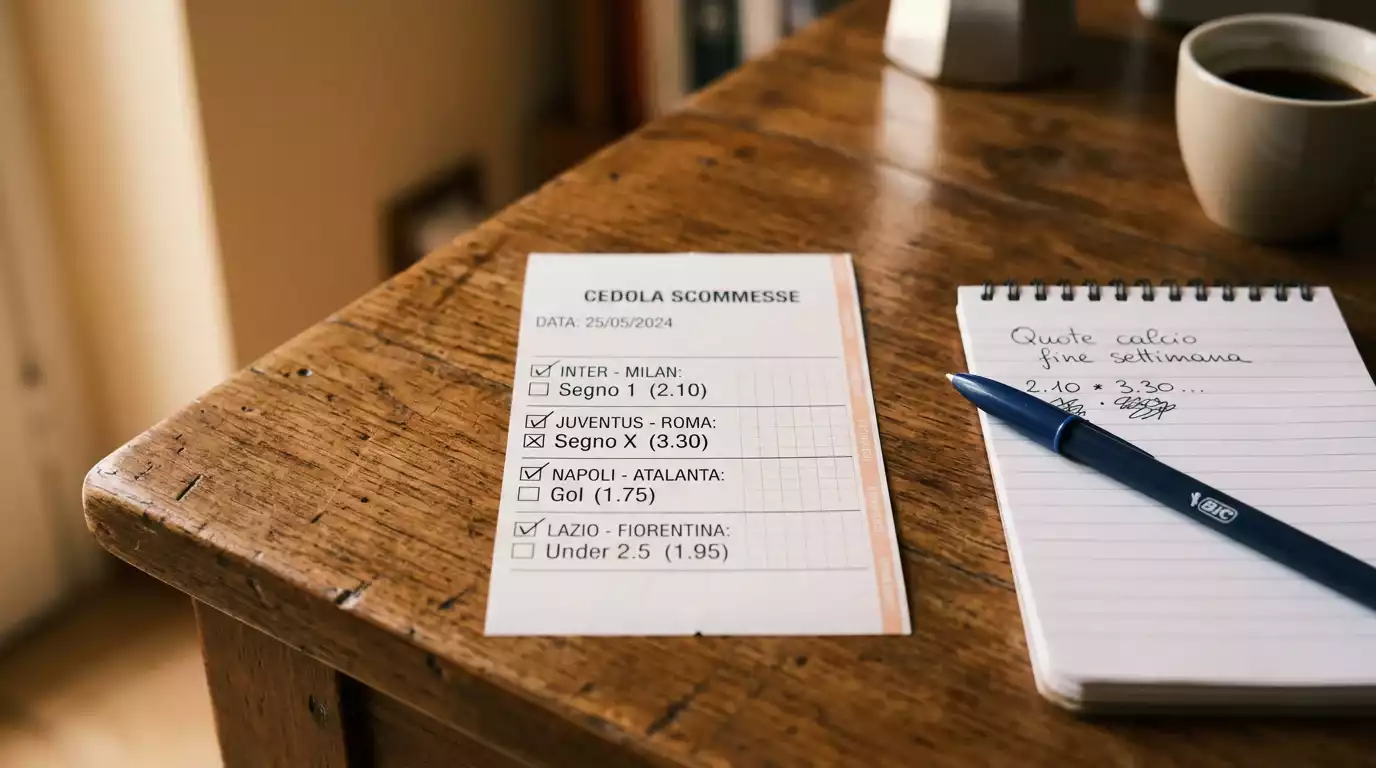 CEDOLA SCOMMESSE
DATA: 25/05/2024
INTER - MILAN:
Segno 1 (2.10)
JUVENTUS - ROMA:
Segno X (3.30)
NAPOLI - ATALANTA:
Gol (1.75)
LAZIO - FIORENTINA:
Under 2.5 (1.95)
Quote calcio
fine settimana
2.10 * 3.30...
BIC